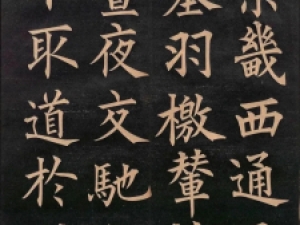 畿西通
羽檄輦
夜交馳
取道於